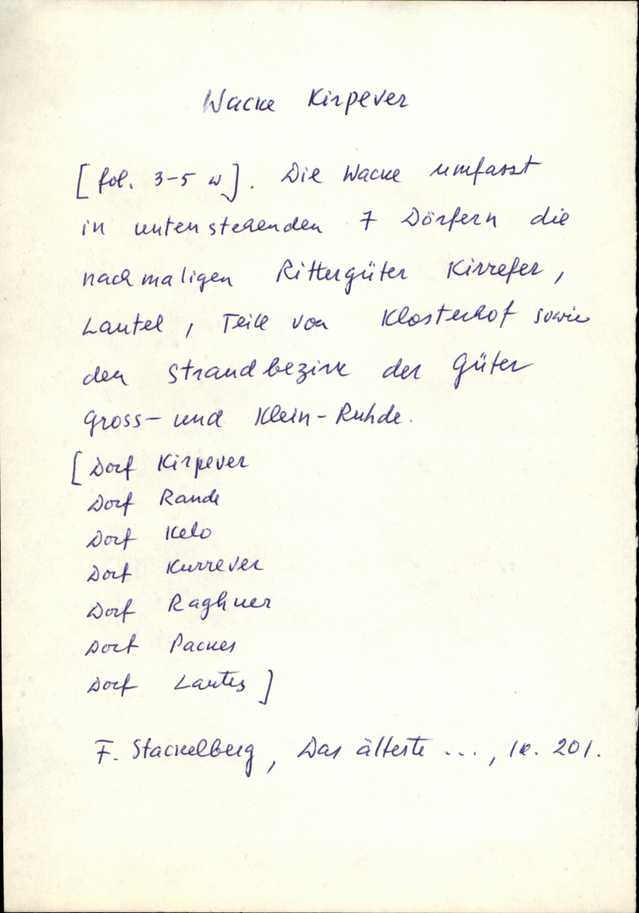 Wacke Kirpever
[fol. 3-5 w]. Die Wacke umfasst
in untenstehenden 7 Dörfern die
nachmaligen Rittergüter Kirrefer,
Lautel, Teile von Klosterhof sowie
den Strandbezirk der Güter
Gross- und Klein-Ruhde.
[Dorf Kirpever
Dorf Rande
Dorf Kelo
Dorf Kurrever
Dorf Raghuer
Dorf Packes
Dorf Lautes]
F. Stackelberg, Das älteste ..., lk. 201.